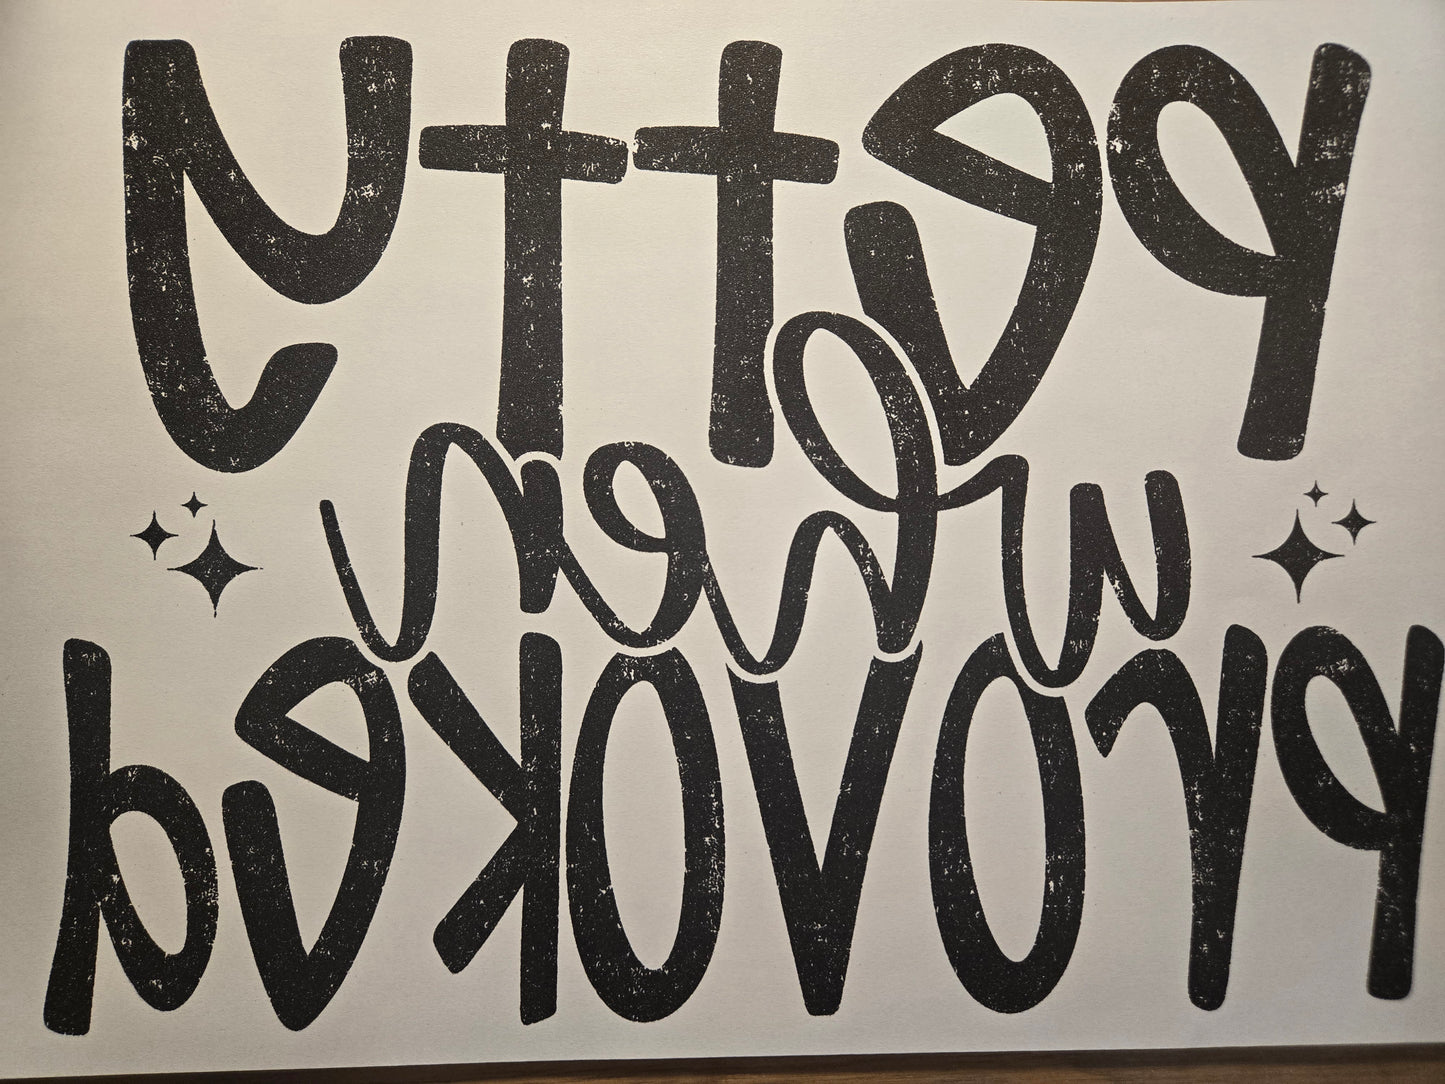 petty
when
provoked